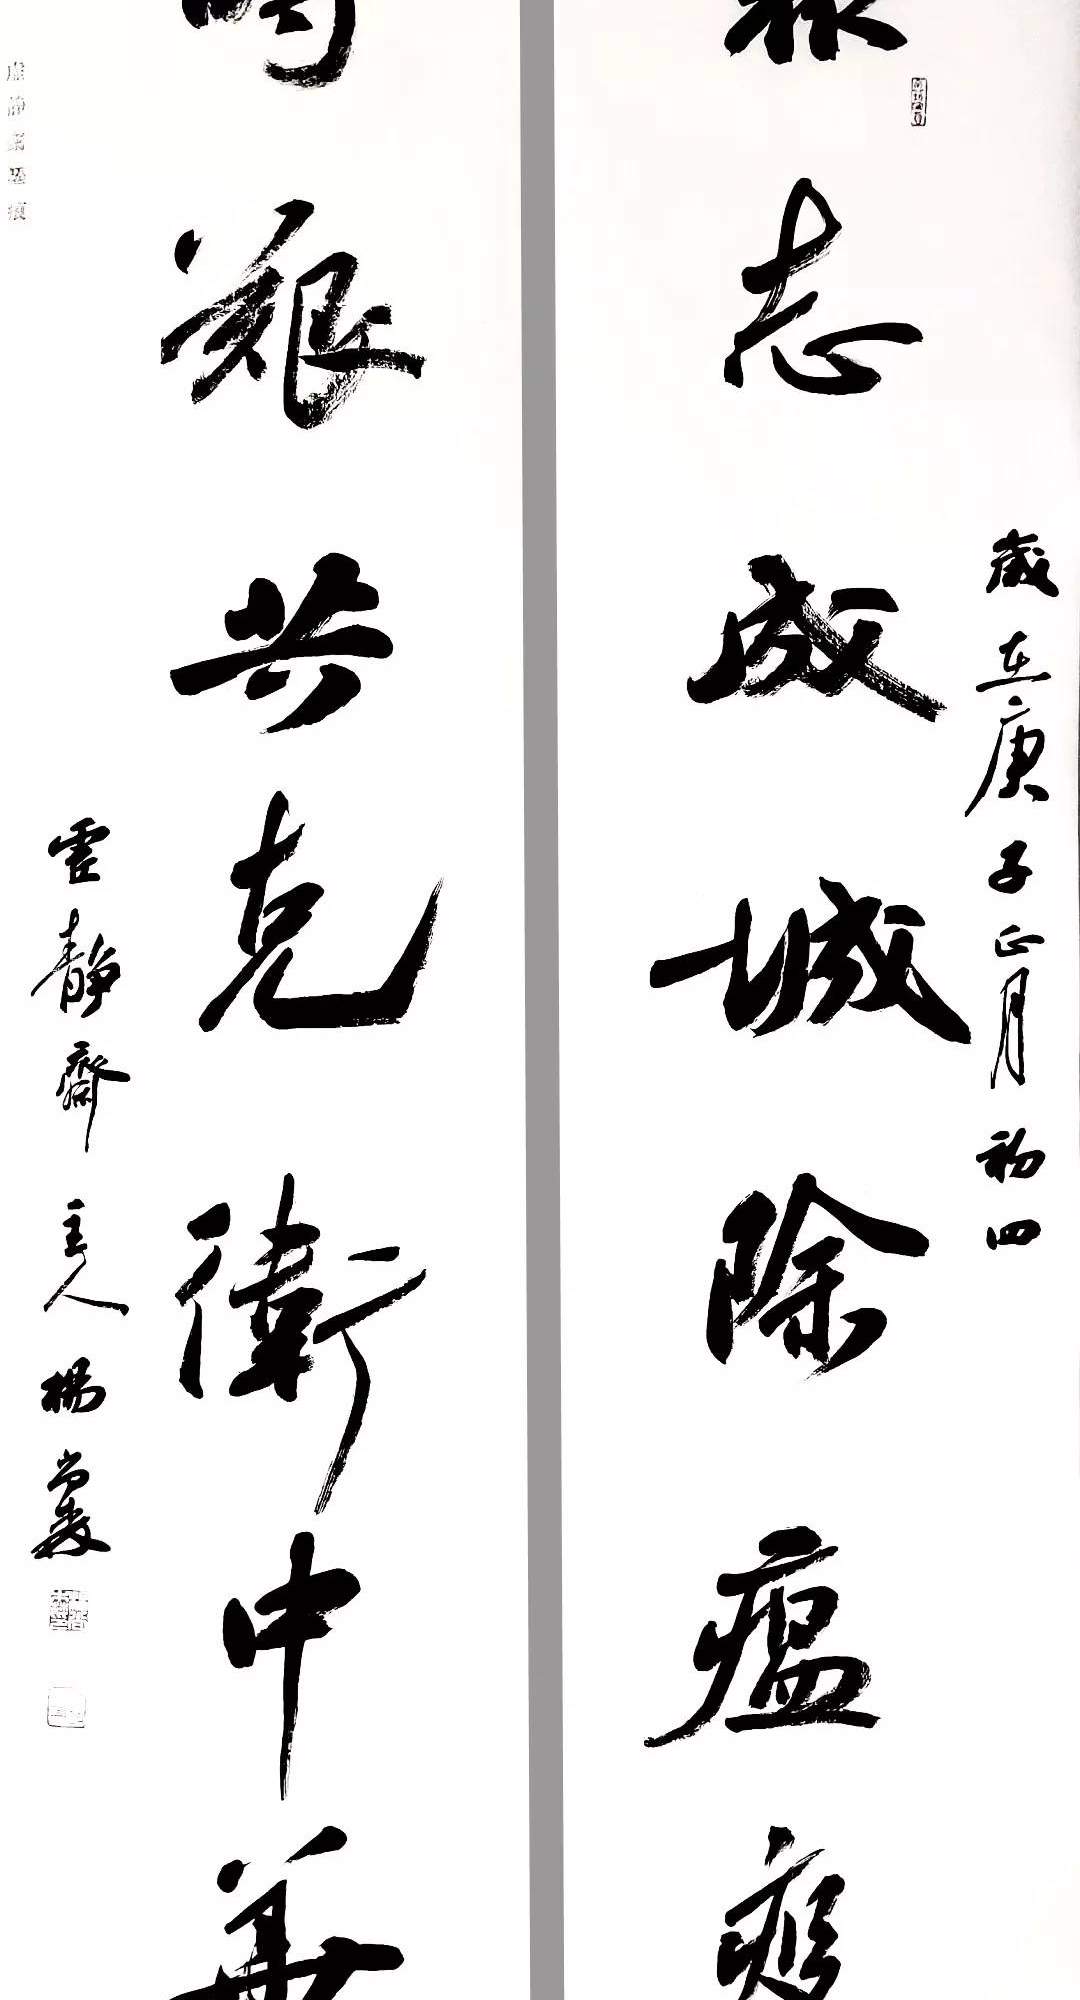 歲在庚子正月初四
眾志成城除瘟疫
時艱共克衛中華
虛靜齋主人楊
虛靜齋墨痕